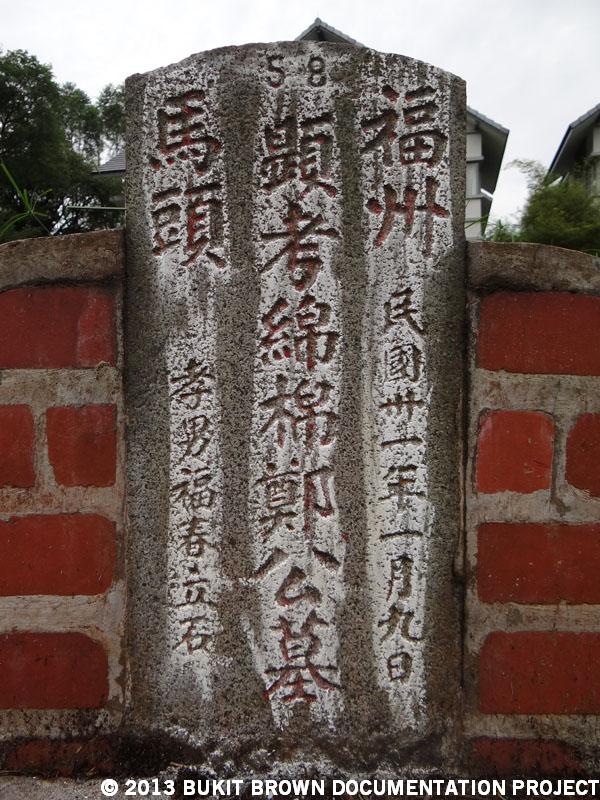 58
福州
民國卅一年一月九日
顯考綿棉鄭公墓
馬頭
孝男福春立石
© 2013 BUKIT BROWN DOCUMENTATION PROJECT